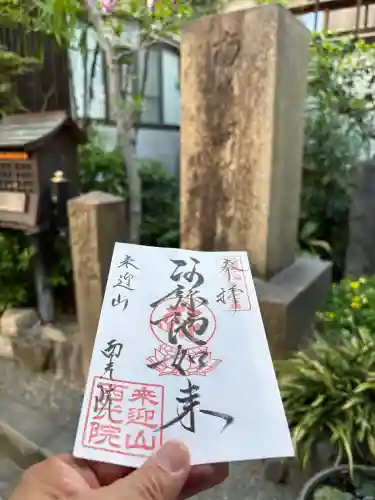 阿弥陀如来
来迎山
西光院
来迎山
西光院